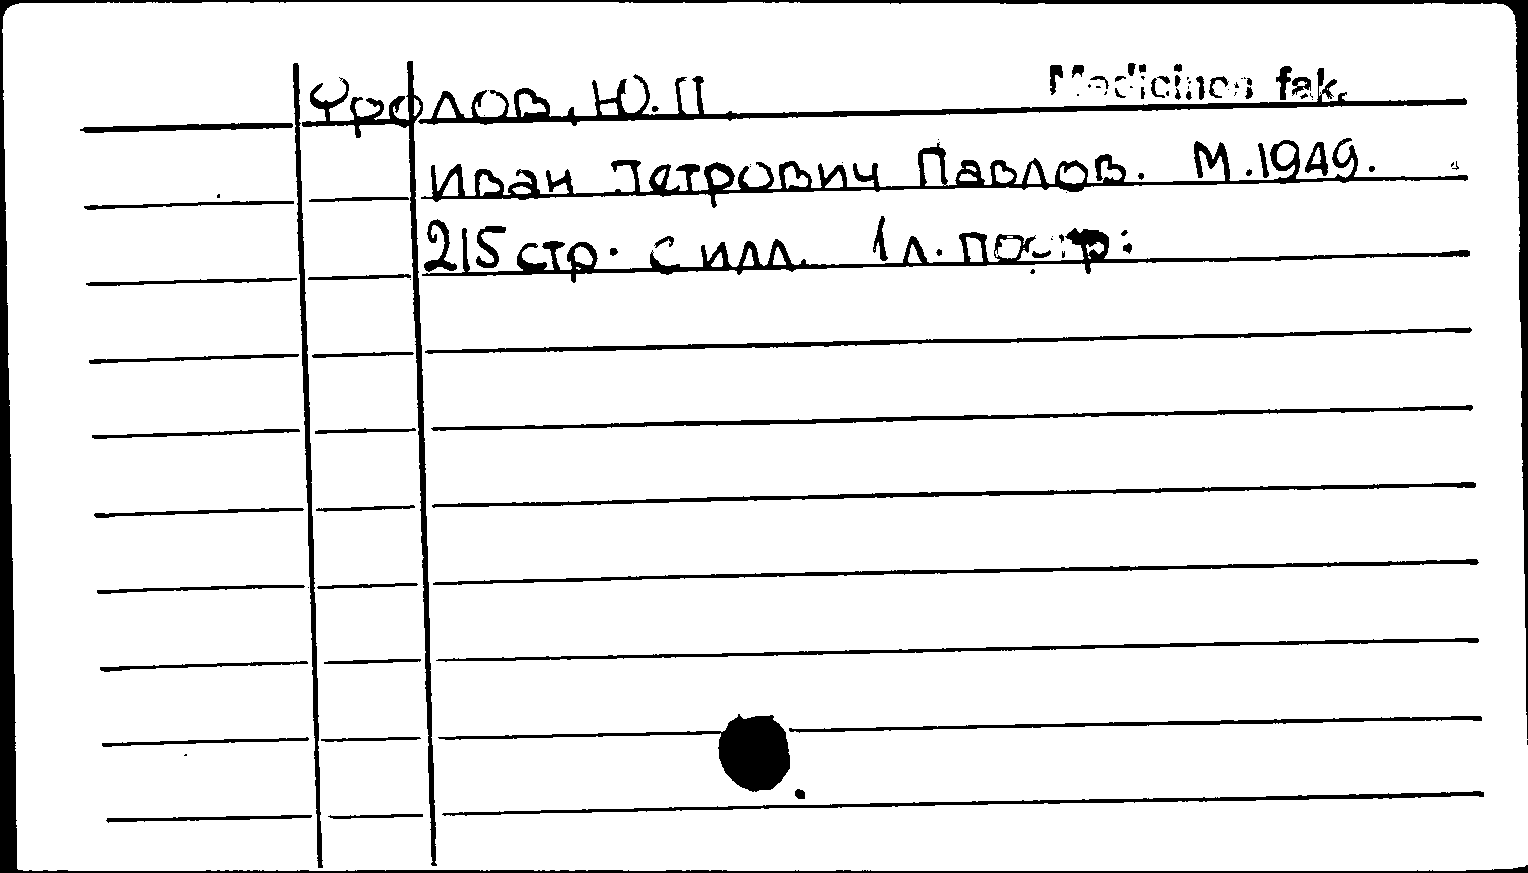 Фролов, Ю.П. Medicinos fak.
Иван Петрович Павлов. М.1949.
215 стр. с илл. 1 л. портр.